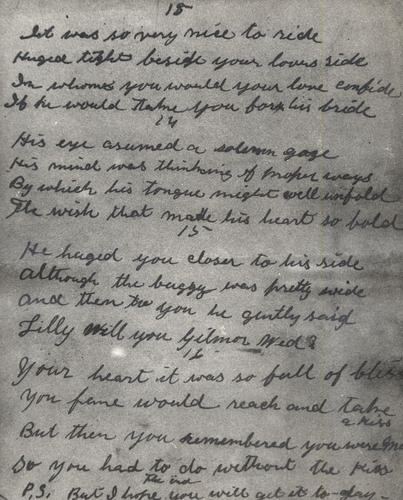 13
It was so very nice to ride
Huged tight beside your lovers side
In whome you would your love confide
If he would take you for his bride
14
His eye asumed a solemn gage
His mind was thinking of proper ways
By which his tongue might well unfold
The wish that made his heart so bold
15
He huged you closer to his side
although the buggy was pretty wide
and then to you he gently said
Lilly will you Gilmor Wed?
16
Your heart it was so full of bliss
You fane would reach and take
a Kiss
But then you remembered you were
So you had to do without the Kiss
the end
P.S. But I hope you will get it to-day-